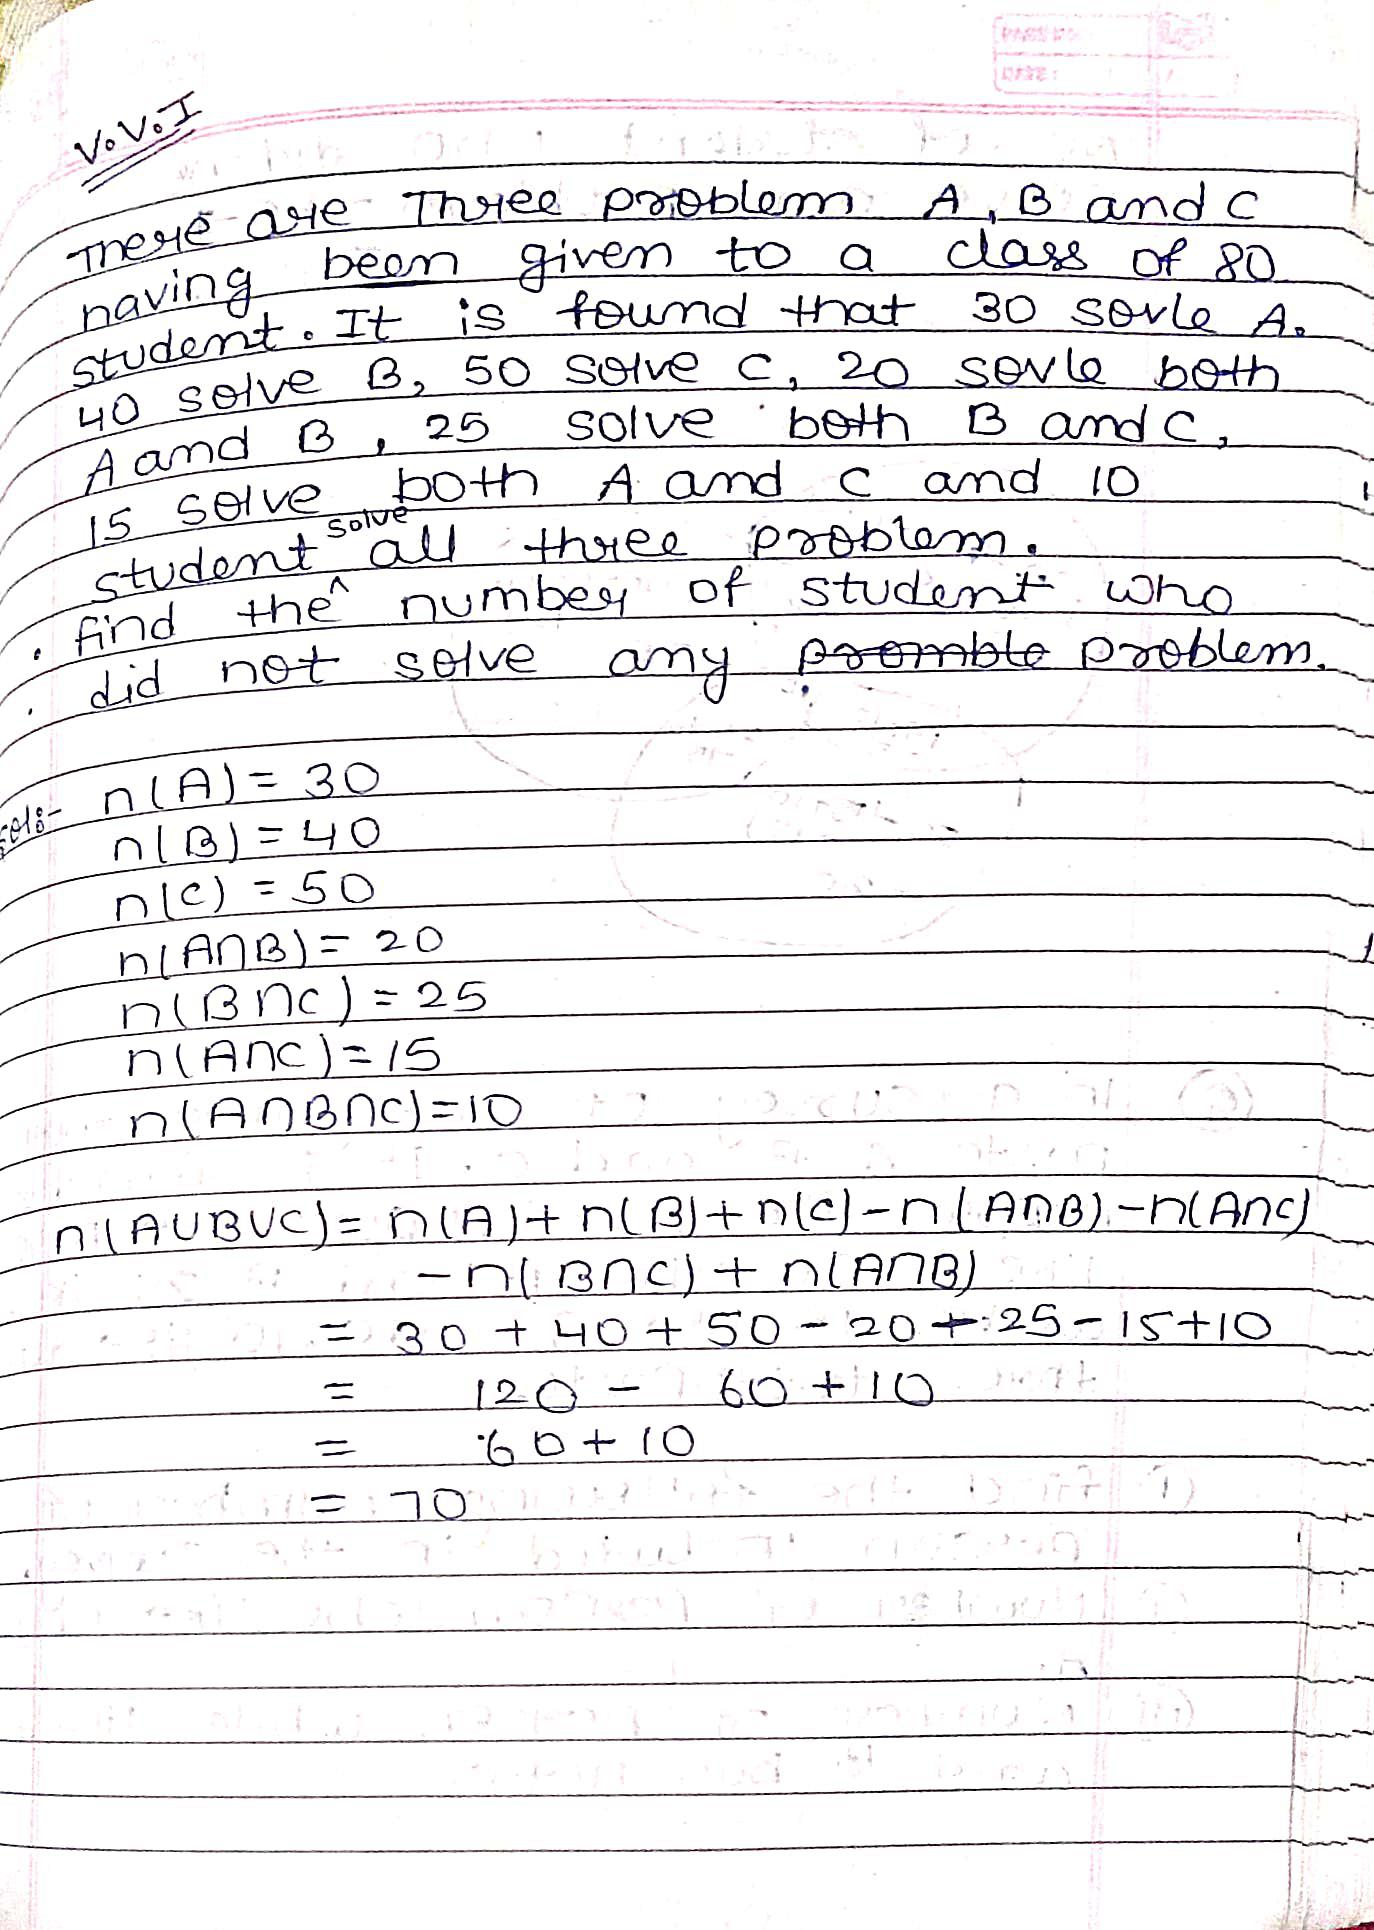 PAGE NO:
DATE:
V.V.I
There are Three problem A, B and C
having been given to a class of 80
student. It is found that 30 sovle A.
40 solve B, 50 solve C, 20 sovle both
A and B, 25 solve both B and C,
15 solve both A and C and 10
student solve all three problem.
find the number of student who
did not solve any promble problem.
Sol:- n(A) = 30
n(B) = 40
n(C) = 50
n(A∩B) = 20
n(B∩C) = 25
n(A∩C) = 15
n(A∩B∩C) = 10
n(A∪B∪C) = n(A) + n(B) + n(C) - n(A∩B) - n(A∩C)
- n(B∩C) + n(A∩B)
= 30 + 40 + 50 - 20 + 25 - 15 + 10
= 120 - 60 + 10
= 60 + 10
= 70